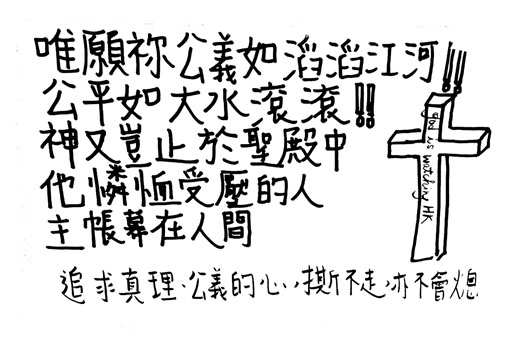 唯願祢公義如滔滔江河!!!
公平如大水滾滾!!
神又豈止於聖殿中
他憐恤受壓的人
主帳幕在人間
god is watching HK
追求真理、公義的心,撕不走,亦不會熄